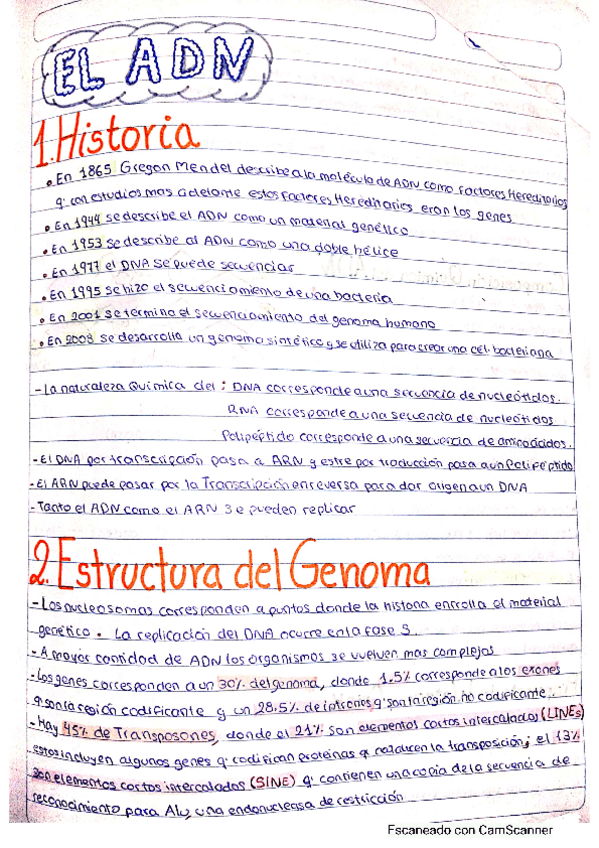 EL ADN
1. Historia
• En 1865 Gregon Mendel describe a la molécula de ADN como Factores Hereditarios
q' con estudios mas adelante estos Factores Hereditarios eran los genes
• En 1944 se describe el ADN como un material genético
• En 1953 se describe al ADN como una doble hélice
• En 1977 el DNA se puede secuenciar
• En 1995 se hizo el secuenciamiento de una bacteria
• En 2001 se termino el secuenciamiento del genoma humano
• En 2008 se desarrolla un genoma sintético y se utiliza para crear una cél. bacteriana
- La naturaleza Química del : DNA corresponde a una secuencia de nucleótidos.
RNA corresponde a una secuencia de nucleótidos
Polipéptido corresponde a una secuencia de aminoácidos.
- El DNA por transcripción pasa a ARN y estre por traducción pasa a un Polipéptido
- El ARN puede pasar por la Transcripción en reversa para dar origen a un DNA
- Tanto el ADN como el ARN se pueden replicar
2. Estructura del Genoma
- Los nucleosomas corresponden a puntos donde la histona enrrolla el material
genético. La replicación del DNA ocurre en la fase S.
- A mayor cantidad de ADN los organismos se vuelven mas complejos
- Los genes corresponden a un 30% del genoma, donde 1.5% corresponde a los exones
q' son la región codificante y un 28.5% de intrones q' son la región no codificante.
- Hay 45% de Transposones, donde el 21% son elementos cortos intercalados (LINEs)
estos incluyen algunos genes q' codifican proteínas q' realizan la transposición; el 13%
son elementos cortos intercalados (SINE) q' contienen una copia de la secuencia de
reconocimiento para Alu, una endonucleasa de restricción
Escaneado con CamScanner